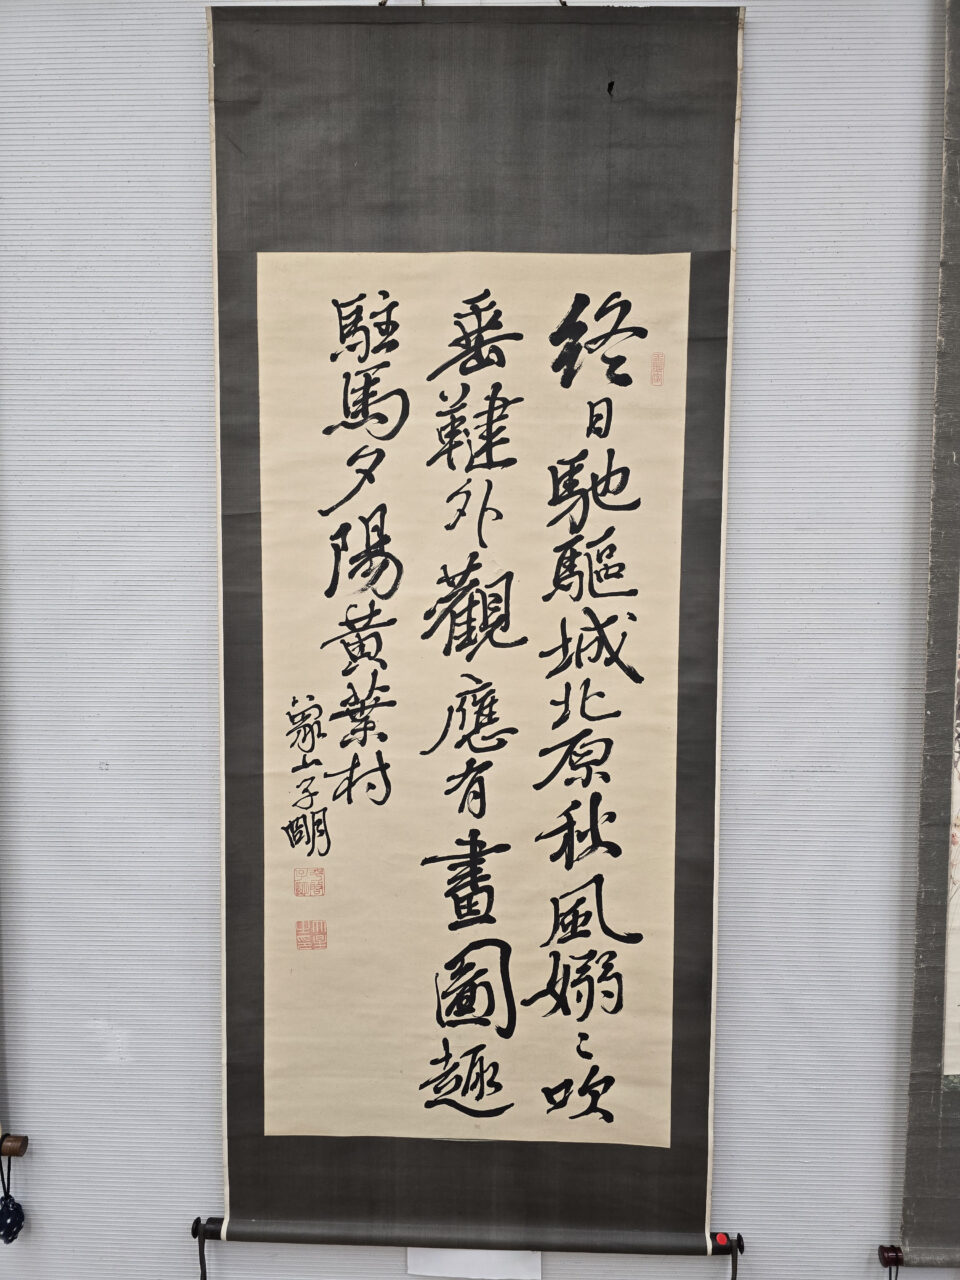 終日馳驅城北原秋風嫋〻吹
垂鞬外觀應有畫圖趣
駐馬夕陽黃葉村
山子明